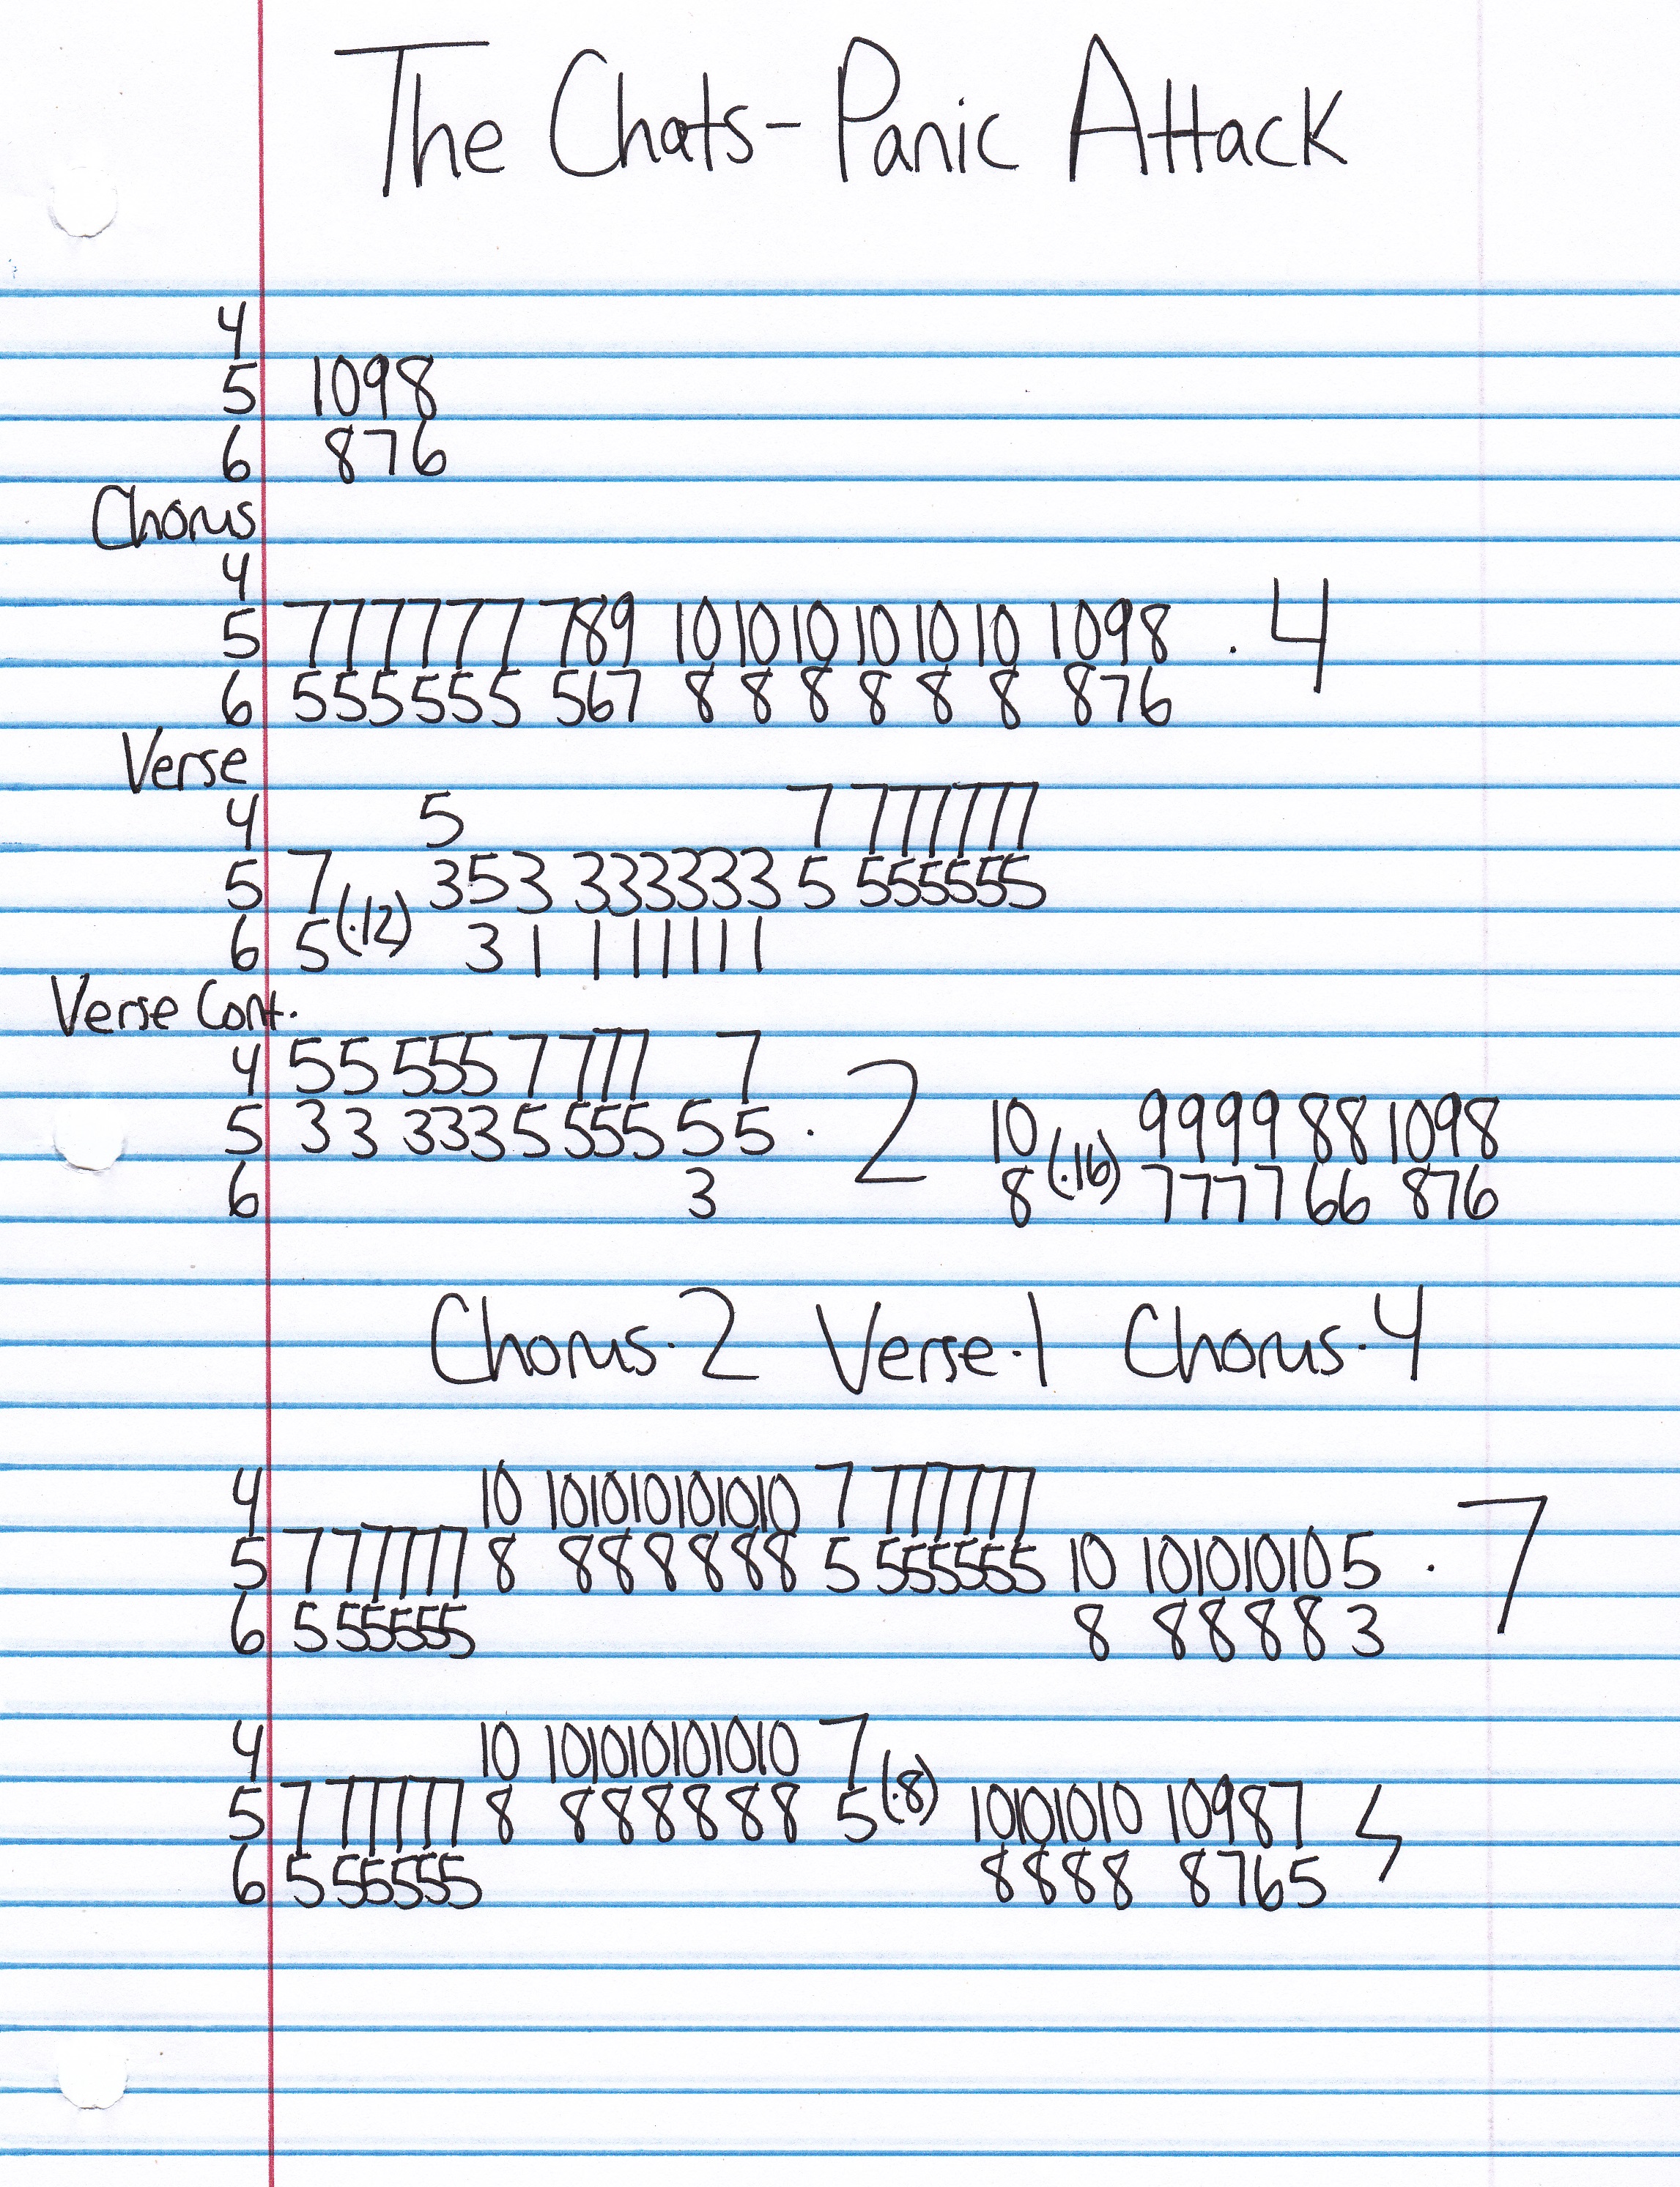 The Chats - Panic Attack
4
5 10 9 8
6 8 7 6
Chorus
4
5 7 7 7 7 7 7 7 8 9 10 10 10 10 10 10 10 9 8 . 4
6 5 5 5 5 5 5 5 6 7 8 8 8 8 8 8 8 7 6
Verse
4 5 7 7 7 7 7 7 7
5 7 (.12) 3 5 3 3 3 3 3 3 3 5 5 5 5 5 5 5
6 5 3 1 1 1 1 1 1 1
Verse Cont.
4 5 5 5 5 5 7 7 7 7 7
5 3 3 3 3 3 5 5 5 5 5 5 . 2 10 (.16) 9 9 9 9 8 8 10 9 8
6 3 8 7 7 7 7 6 6 8 7 6
Chorus . 2 Verse . 1 Chorus . 4
4 10 10 10 10 10 10 10 7 7 7 7 7 7 7
5 7 7 7 7 7 7 8 8 8 8 8 8 8 5 5 5 5 5 5 5 10 10 10 10 10 5 . 7
6 5 5 5 5 5 5 8 8 8 8 8 3
4 10 10 10 10 10 10 10 7
5 7 7 7 7 7 7 8 8 8 8 8 8 8 5 (.8) 10 10 10 10 10 9 8 7
6 5 5 5 5 5 5 8 8 8 8 8 7 6 5